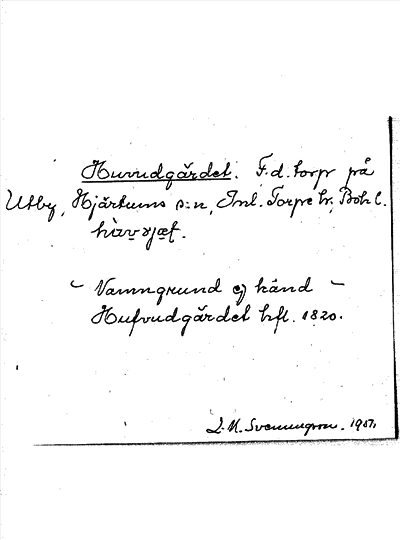 Huvudgärdet. F.d. torp på
Utby, Hjärtums s:n, Inl. Torpe hr, Boh l.
– Namngrund ej känd –
Hufvudgärdet hfl. 1820.
J. M. Svenungsson. 1957.